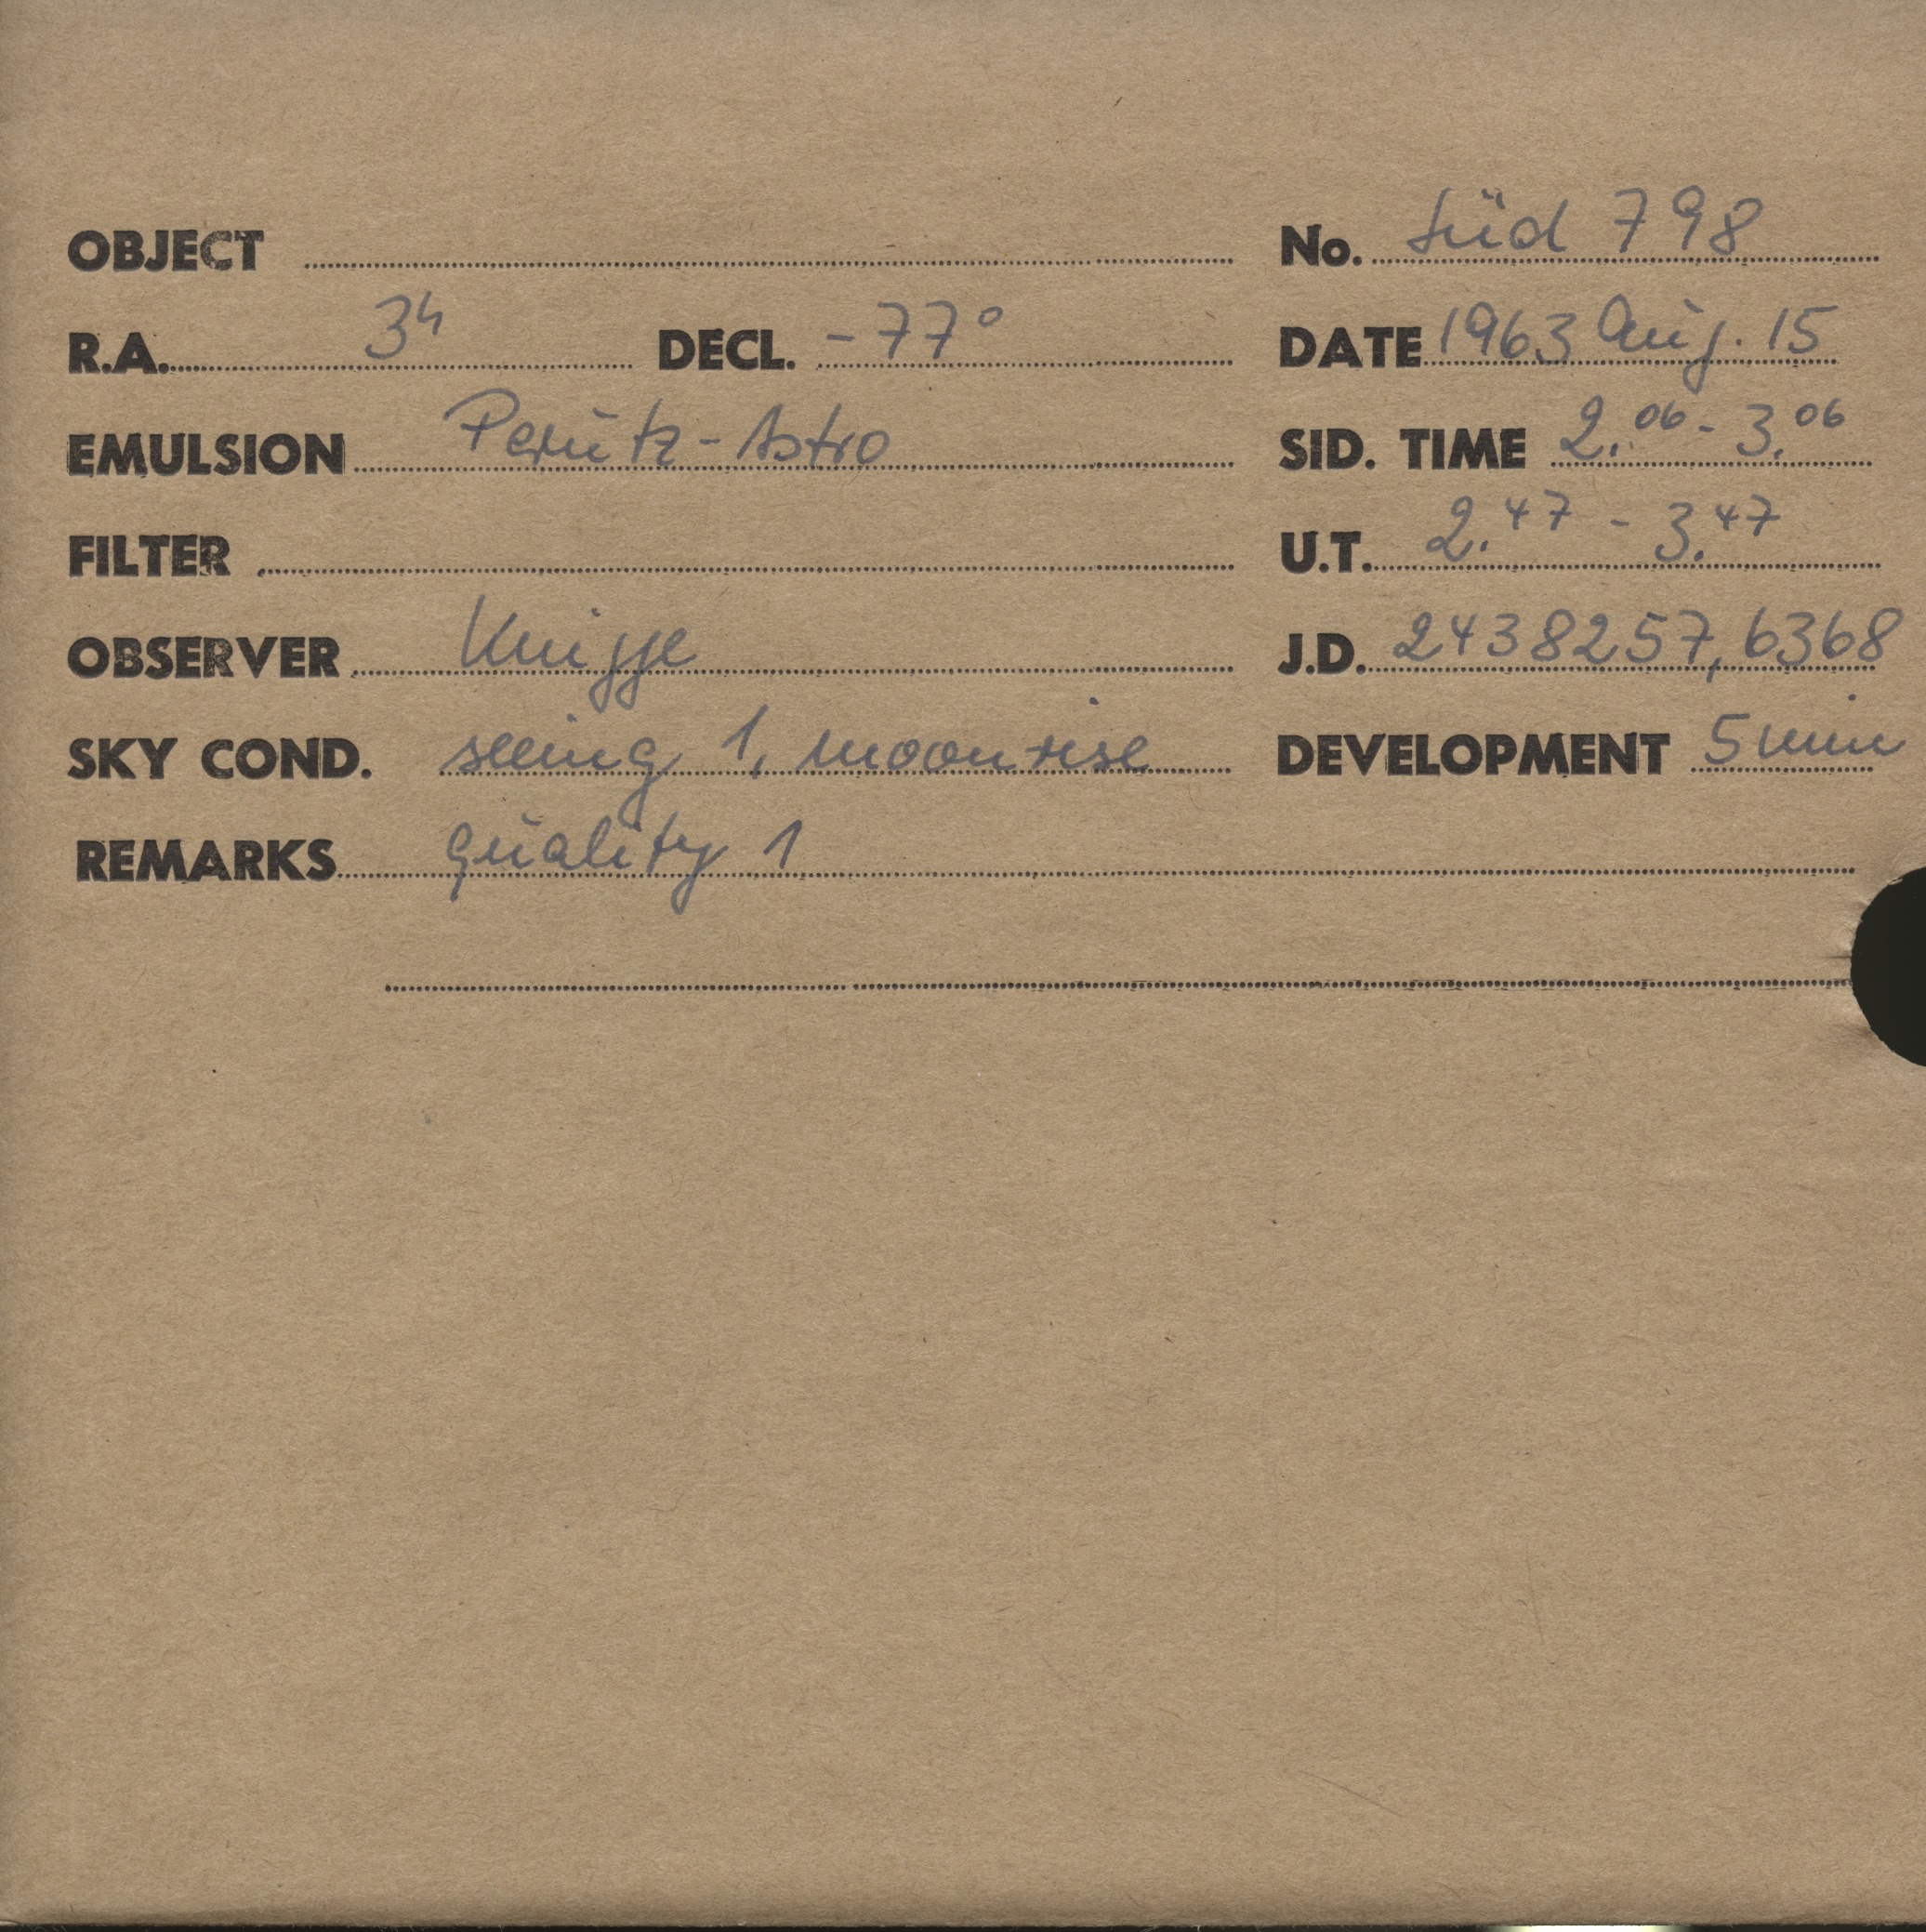 OBJECT No. Süd 798
R.A. 3h DECL. -77° DATE 1963 Aug. 15
EMULSION Perutz-Astro SID. TIME 2.06 - 3.06
FILTER U.T. 2.47 - 3.47
OBSERVER Knigge J.D. 2438257,6368
SKY COND. seeing 1, moonrise DEVELOPMENT 5 min
REMARKS quality 1